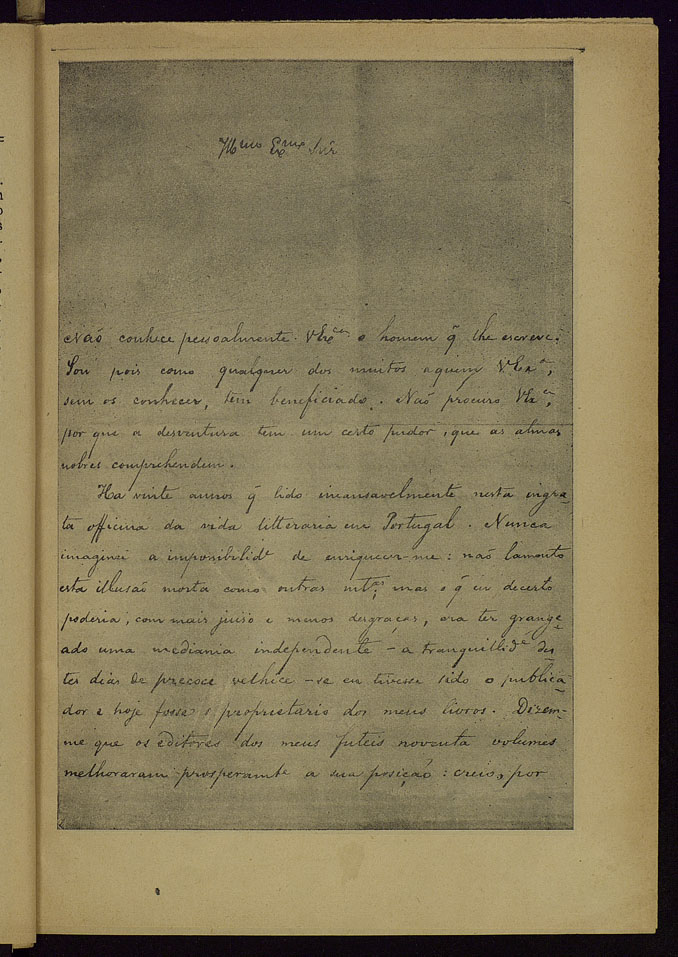 Illmo Exmo Snr
Não conhece pessoalmente VExcia o homem q̃ lhe escreve.
Sou pois como qualquer dos muitos aquem V.Exa,
sem os conhecer, tem beneficiado. Não procuro VExcia,
por que a desventura tem um certo pudor, que as almas
nobres comprehendem.
Ha vinte annos q̃ lido incansavelmente nesta ingra-
ta officina da vida litteraria em Portugal. Nunca
imaginei a imposibilide de enriquecer-me: não lamento
esta illusaõ morta como outras mtas; mas o q̃ eu decerto
poderia, com mais juiso e menos desgraças, era ter grange-
ado uma mediania independente – a tranquillide des-
tes dias de precoce velhice – se eu tivesse sido o publica-
dor e hoje fosse o proprietario dos meus livros. Dizem-
me que os editores dos meus futeis noventa volumes
melhoraram prosperamte a sua posição: creio, por